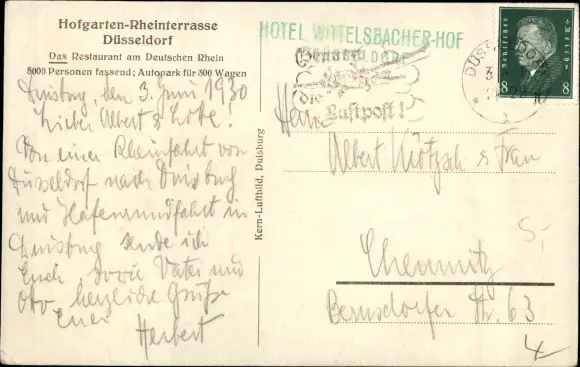 Hofgarten-Rheinterrasse
Düsseldorf
Das Restaurant am Deutschen Rhein
5000 Personen fassend; Autopark für 800 Wagen
Duisburg, den 3. Juni 1930
Lieber Albert & Lotte!
Von einer Rheinfahrt von
Düsseldorf nach Duisburg
und Hafenrundfahrt in
Duisburg sende ich
Euch, sowie Vater und
Otto, herzliche Grüße
Euer
Herbert
Kern-Luftbild, Duisburg
HOTEL WITTELSBACHER-HOF
DÜSSELDORF
Benutzt
die
Luftpost!
DÜSSELDORF
Deutsches Reich
8 8
Herrn
Albert & Frau
Chemnitz
Bernsdorfer Str. 63
4